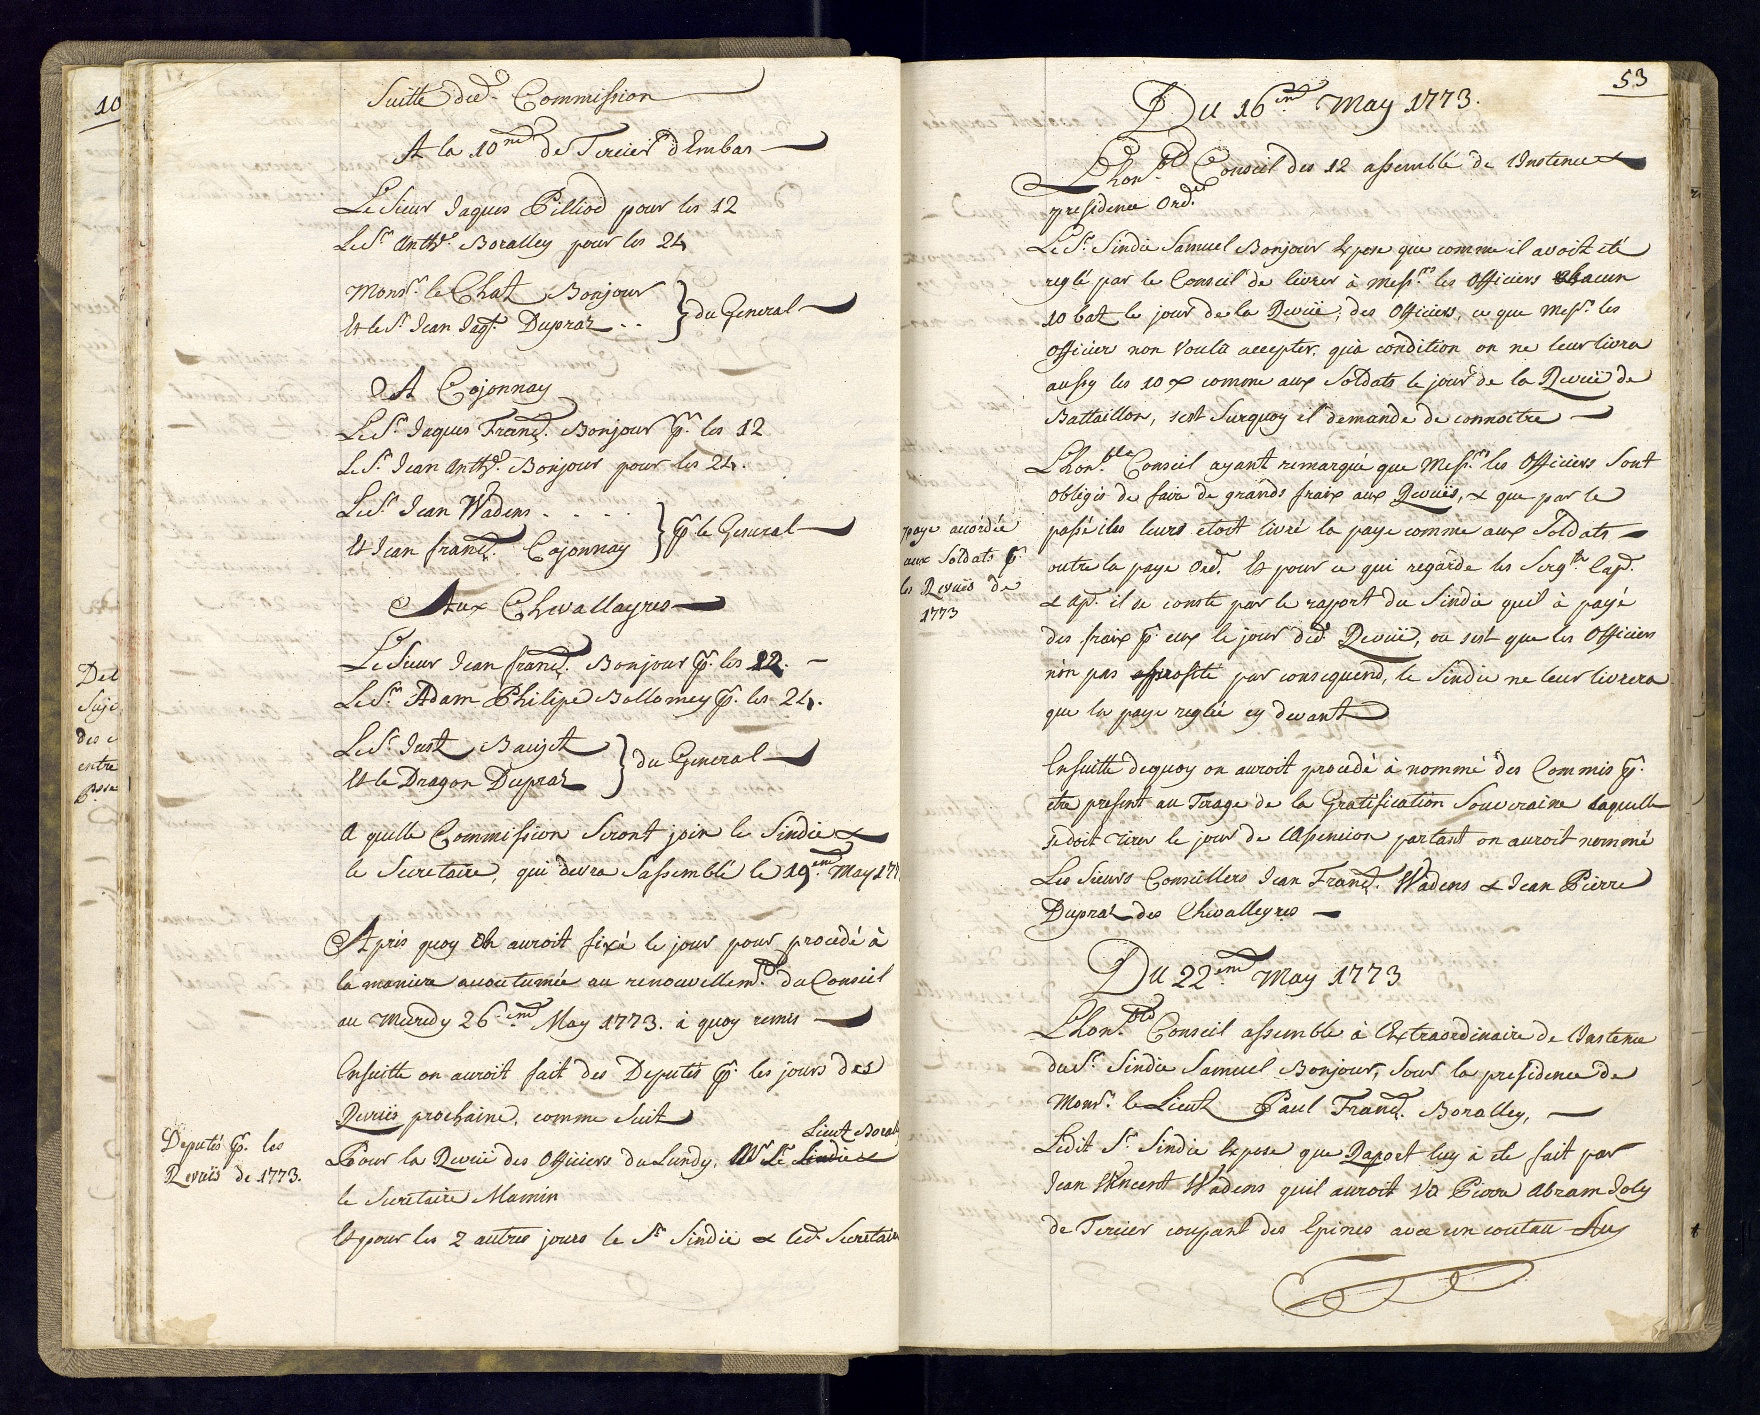 10
Suitte dud. Commission
A la 10me de Tercier d'Embas
Le Sieur Jaques Pilliod pour les 12
Le Sr. Anthe. Boralley pour les 24
Monsr. le Chat. Bonjour
Et le Sr. Jean Jaqs. Dupraz . . } du General
A Cojonnay
Le Sr. Jaques Franç. Bonjour pr. les 12
Le Sr. Jean Anthe. Bonjour pour les 24.
Le Sr. Jean Wadens . . . .
Et Jean franç. Cojonnay } pr le General
Aux Chevallayres
Le Sieur Jean franç. Bonjour pr. les 12.
Le Sr. Adam Philipe Bollomey pr. les 24.
Le Sr. Just Baujet
Et le Dragon Dupraz } du General
A quelle Commission seront join le Sindic &
le Secretaire, qui devra s'assemblé le 19.eme May 177
Apris quoy on auroit fixé le jour pour procedé à
la maniere accoutumée au renouvellemt. du Conseil
au Mecredy 26.eme May 1773. à quoy remis
Ensuitte on auroit fait des Deputés pr. les jours des
Revuës prochaine, comme suit
Lieut Boral
Deputés pr. les
Revuës de 1773.
Pour la Revuë des Officiers du Lundy, Mr Le Sindic &
le Secretaire Mamin
Et pour les 2 autres jours le Sr Sindic & led. Secretaire
Det
Suje
des
entre
53
Du 16.eme May 1773.
L'hon.ble Conseil des 12 assemblé de l'instence &
presidence Ord.re
Le Sr. Sindic Samuel Bonjour Expose que comme il avoit eté
reglé par le Conseil de livrer à Messrs. les Officiers chacun
10 bat le jour de la Revuë, des Officiers, ce que Messr. les
Officier non voulû accepter, qu'à condition on ne leur livra
aussy les 10 x comme aux Soldats le jour de la Revuë de
Battaillon, s'est surquoy il demande de connoitre
L'hon.ble Conseil ayant remarqué que Messrs. les Officiers sont
obligés de faire de grands fraix aux Revuës, & que par le
paye accordée
aux Soldats pr.
les Revuës de
1773
passé il leurs etoit livré la paye comme aux Soldats
outre la paye Ord. Et pour ce qui regarde les Sergts. Cap.
& Ap. il se conste par le raport du Sindic quil à payé
des fraix pr. eux le jour dud. Revuë, ou s'est que les Officiers
n'on pas assisté par consequend, le Sindic ne leur livrera
que la paye reglée cy devant
Ensuitte dequoy on auroit procedé à nommé des Commis pr.
etre present au Tirage de la Gratification Souveraine laquelle
se doit tirer le jour de l'Assencion partant on auroit nommé
Les Sieurs Conseillers Jean Franç. Wadens & Jean Pierre
Dupraz des Chevalleyres
Du 22.eme May 1773
L'hon.ble Conseil assemble à l'Extraordinaire de l'instence
du Sr. Sindic Samuel Bonjour, sous la presidence de
Monsr. le Lieut Paul Franç. Boralley,
Ledit Sr. Sindic Expose que Raport luy à ete fait par
Jean Vincent Wadens quil auroit vû Pierre Abram Joly
de Tercier coupant des Epines avec un couteau Au